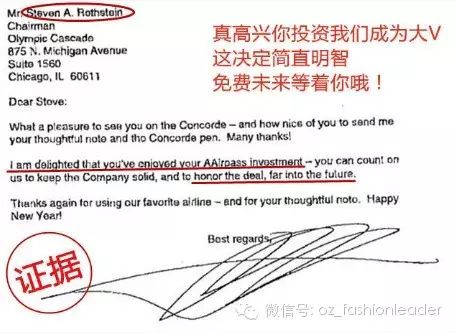 Mr. Steven A. Rothstein
Chairman
Olympic Cascade
875 N. Michigan Avenue
Suite 1560
Chicago, IL 60611
真高兴你投资我们成为大V
这决定简直明智
免费未来等着你哦！
Dear Steve:
What a pleasure to see you on the Concorde – and how nice of you to send me
your thoughtful note and the Concorde pen. Many thanks!
I am delighted that you've enjoyed your AAirpass investment – you can count on
us to keep the Company solid, and to honor the deal, far into the future.
Thanks again for using our favorite airline – and for your thoughtful note. Happy
New Year!
Best regards,
证据
微信号: oz_fashionleader